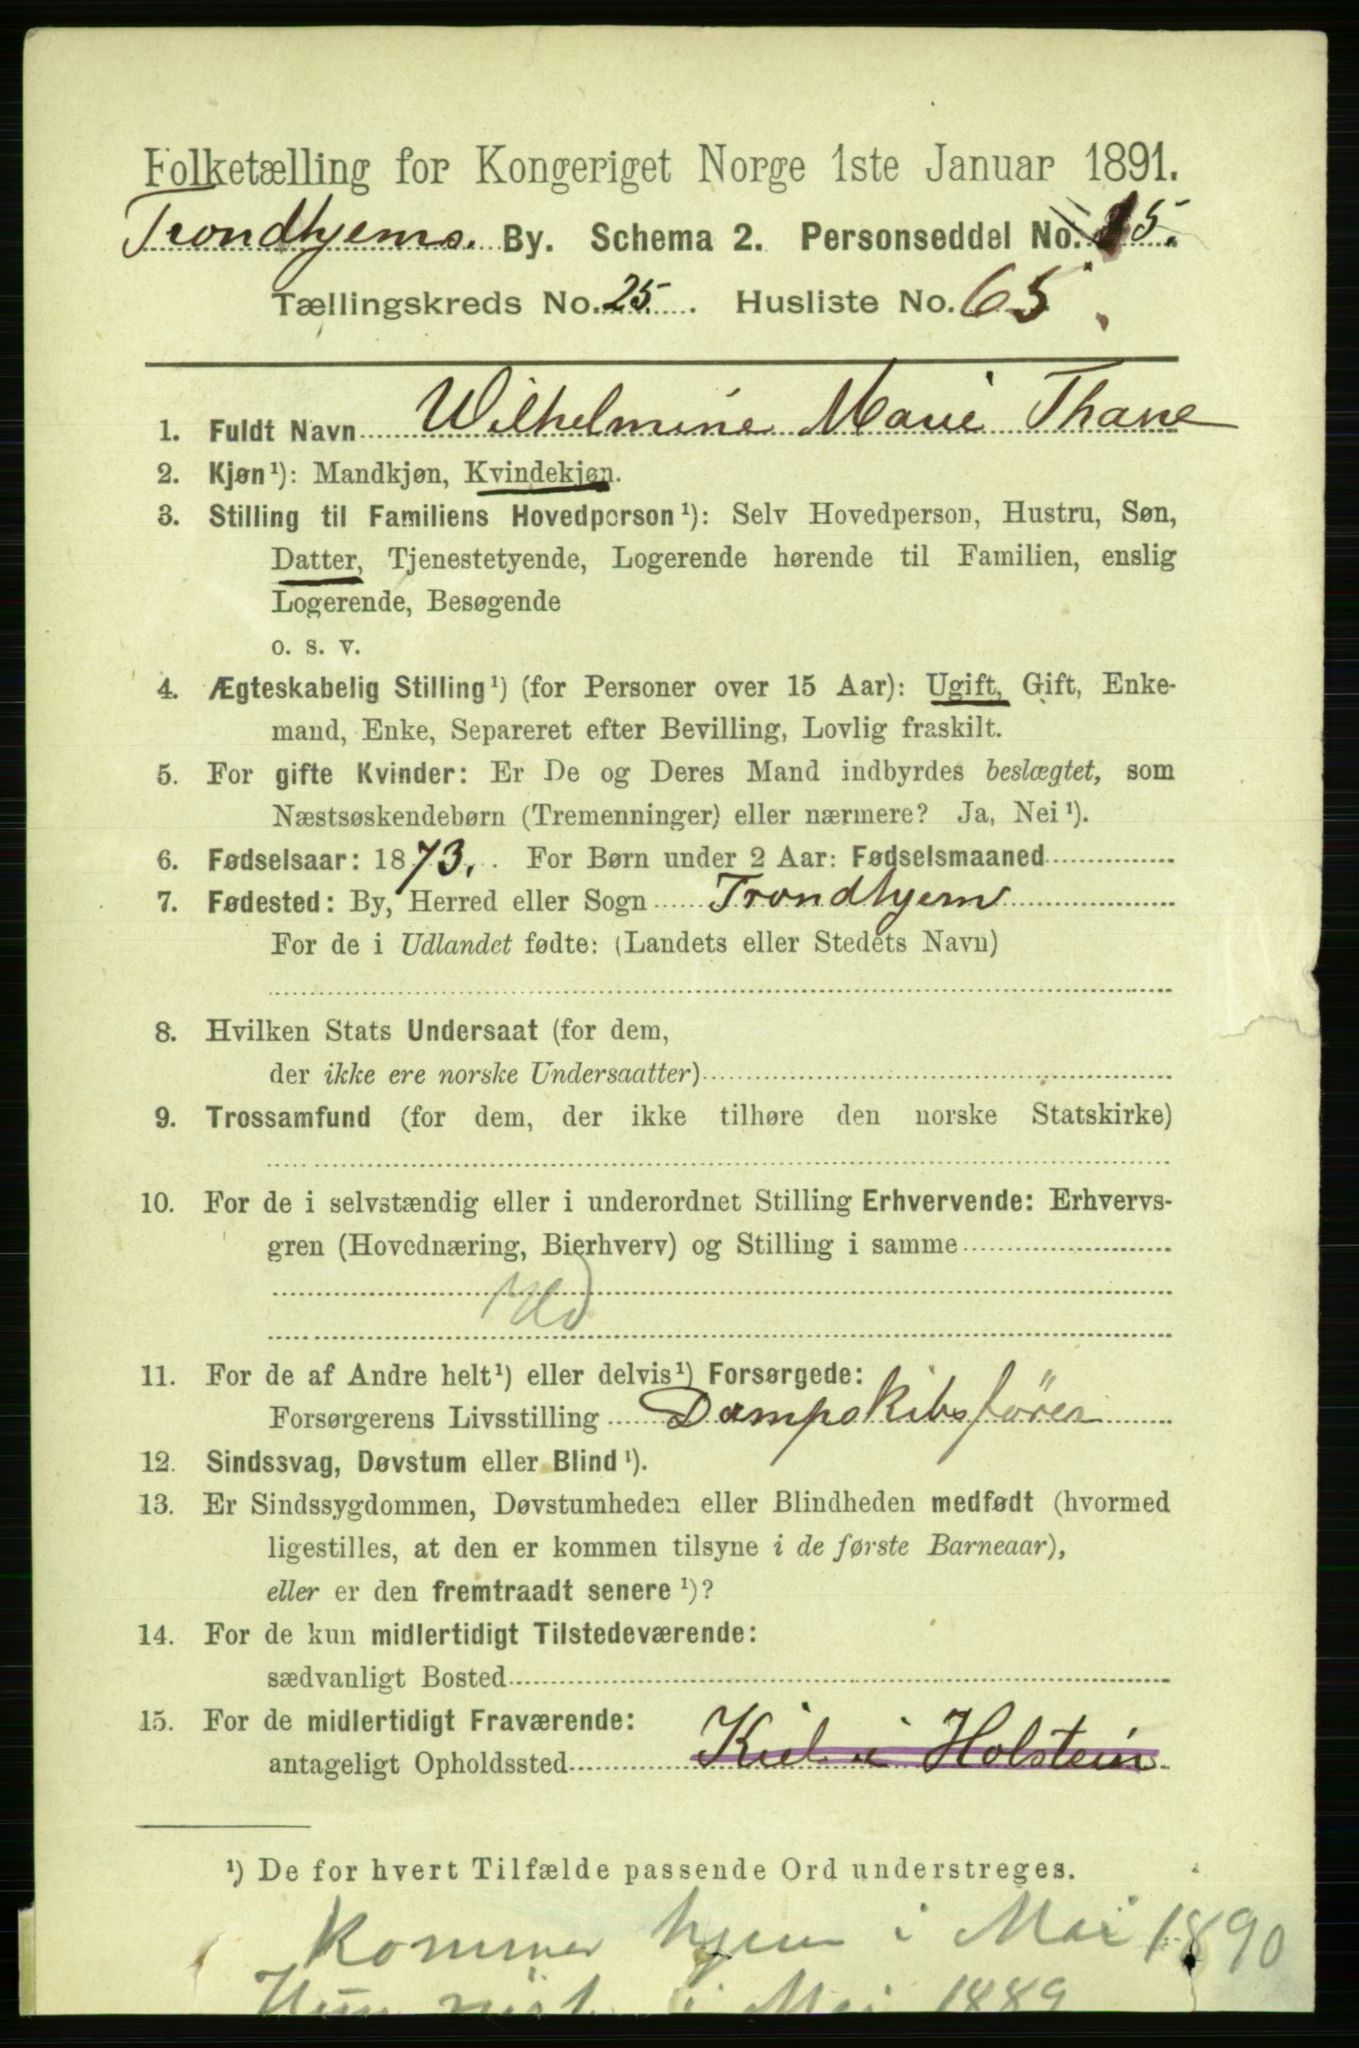 Folketælling for Kongeriget Norge 1ste Januar 1891.
Trondhjems. By. Schema 2. Personseddel No. 15.
Tællingskreds No. 25. Husliste No. 65.
1. Fuldt Navn Wilhelmine Marie Thane
2. Kjøn¹): Mandkjøn, Kvindekjøn.
3. Stilling til Familiens Hovedperson¹): Selv Hovedperson, Hustru, Søn,
Datter, Tjenestetyende, Logerende hørende til Familien, enslig
Logerende, Besøgende
o. s. v.
4. Ægteskabelig Stilling¹) (for Personer over 15 Aar): Ugift, Gift, Enke-
mand, Enke, Separeret efter Bevilling, Lovlig fraskilt.
5. For gifte Kvinder: Er De og Deres Mand indbyrdes beslægtet, som
Næstsøskendebørn (Tremenninger) eller nærmere? Ja, Nei¹).
6. Fødselsaar: 1873. For Børn under 2 Aar: Fødselsmaaned
7. Fødested: By, Herred eller Sogn Trondhjem
For de i Udlandet fødte: (Landets eller Stedets Navn)
8. Hvilken Stats Undersaat (for dem,
der ikke ere norske Undersaatter)
9. Trossamfund (for dem, der ikke tilhøre den norske Statskirke)
10. For de i selvstændig eller i underordnet Stilling Erhvervende: Erhvervs-
gren (Hovednæring, Bierhverv) og Stilling i samme
11. For de af Andre helt¹) eller delvis¹) Forsørgede:
Forsørgerens Livsstilling Dampskibsfører
12. Sindssvag, Døvstum eller Blind¹).
13. Er Sindssygdommen, Døvstumheden eller Blindheden medfødt (hvormed
ligestilles, at den er kommen tilsyne i de første Barneaar),
eller er den fremtraadt senere¹)?
14. For de kun midlertidigt Tilstedeværende:
sædvanligt Bosted
15. For de midlertidigt Fraværende:
antageligt Opholdssted Kiel i Holstein
¹) De for hvert Tilfælde passende Ord understreges.
kommer hjem i Mai 1890
i Mai 1889